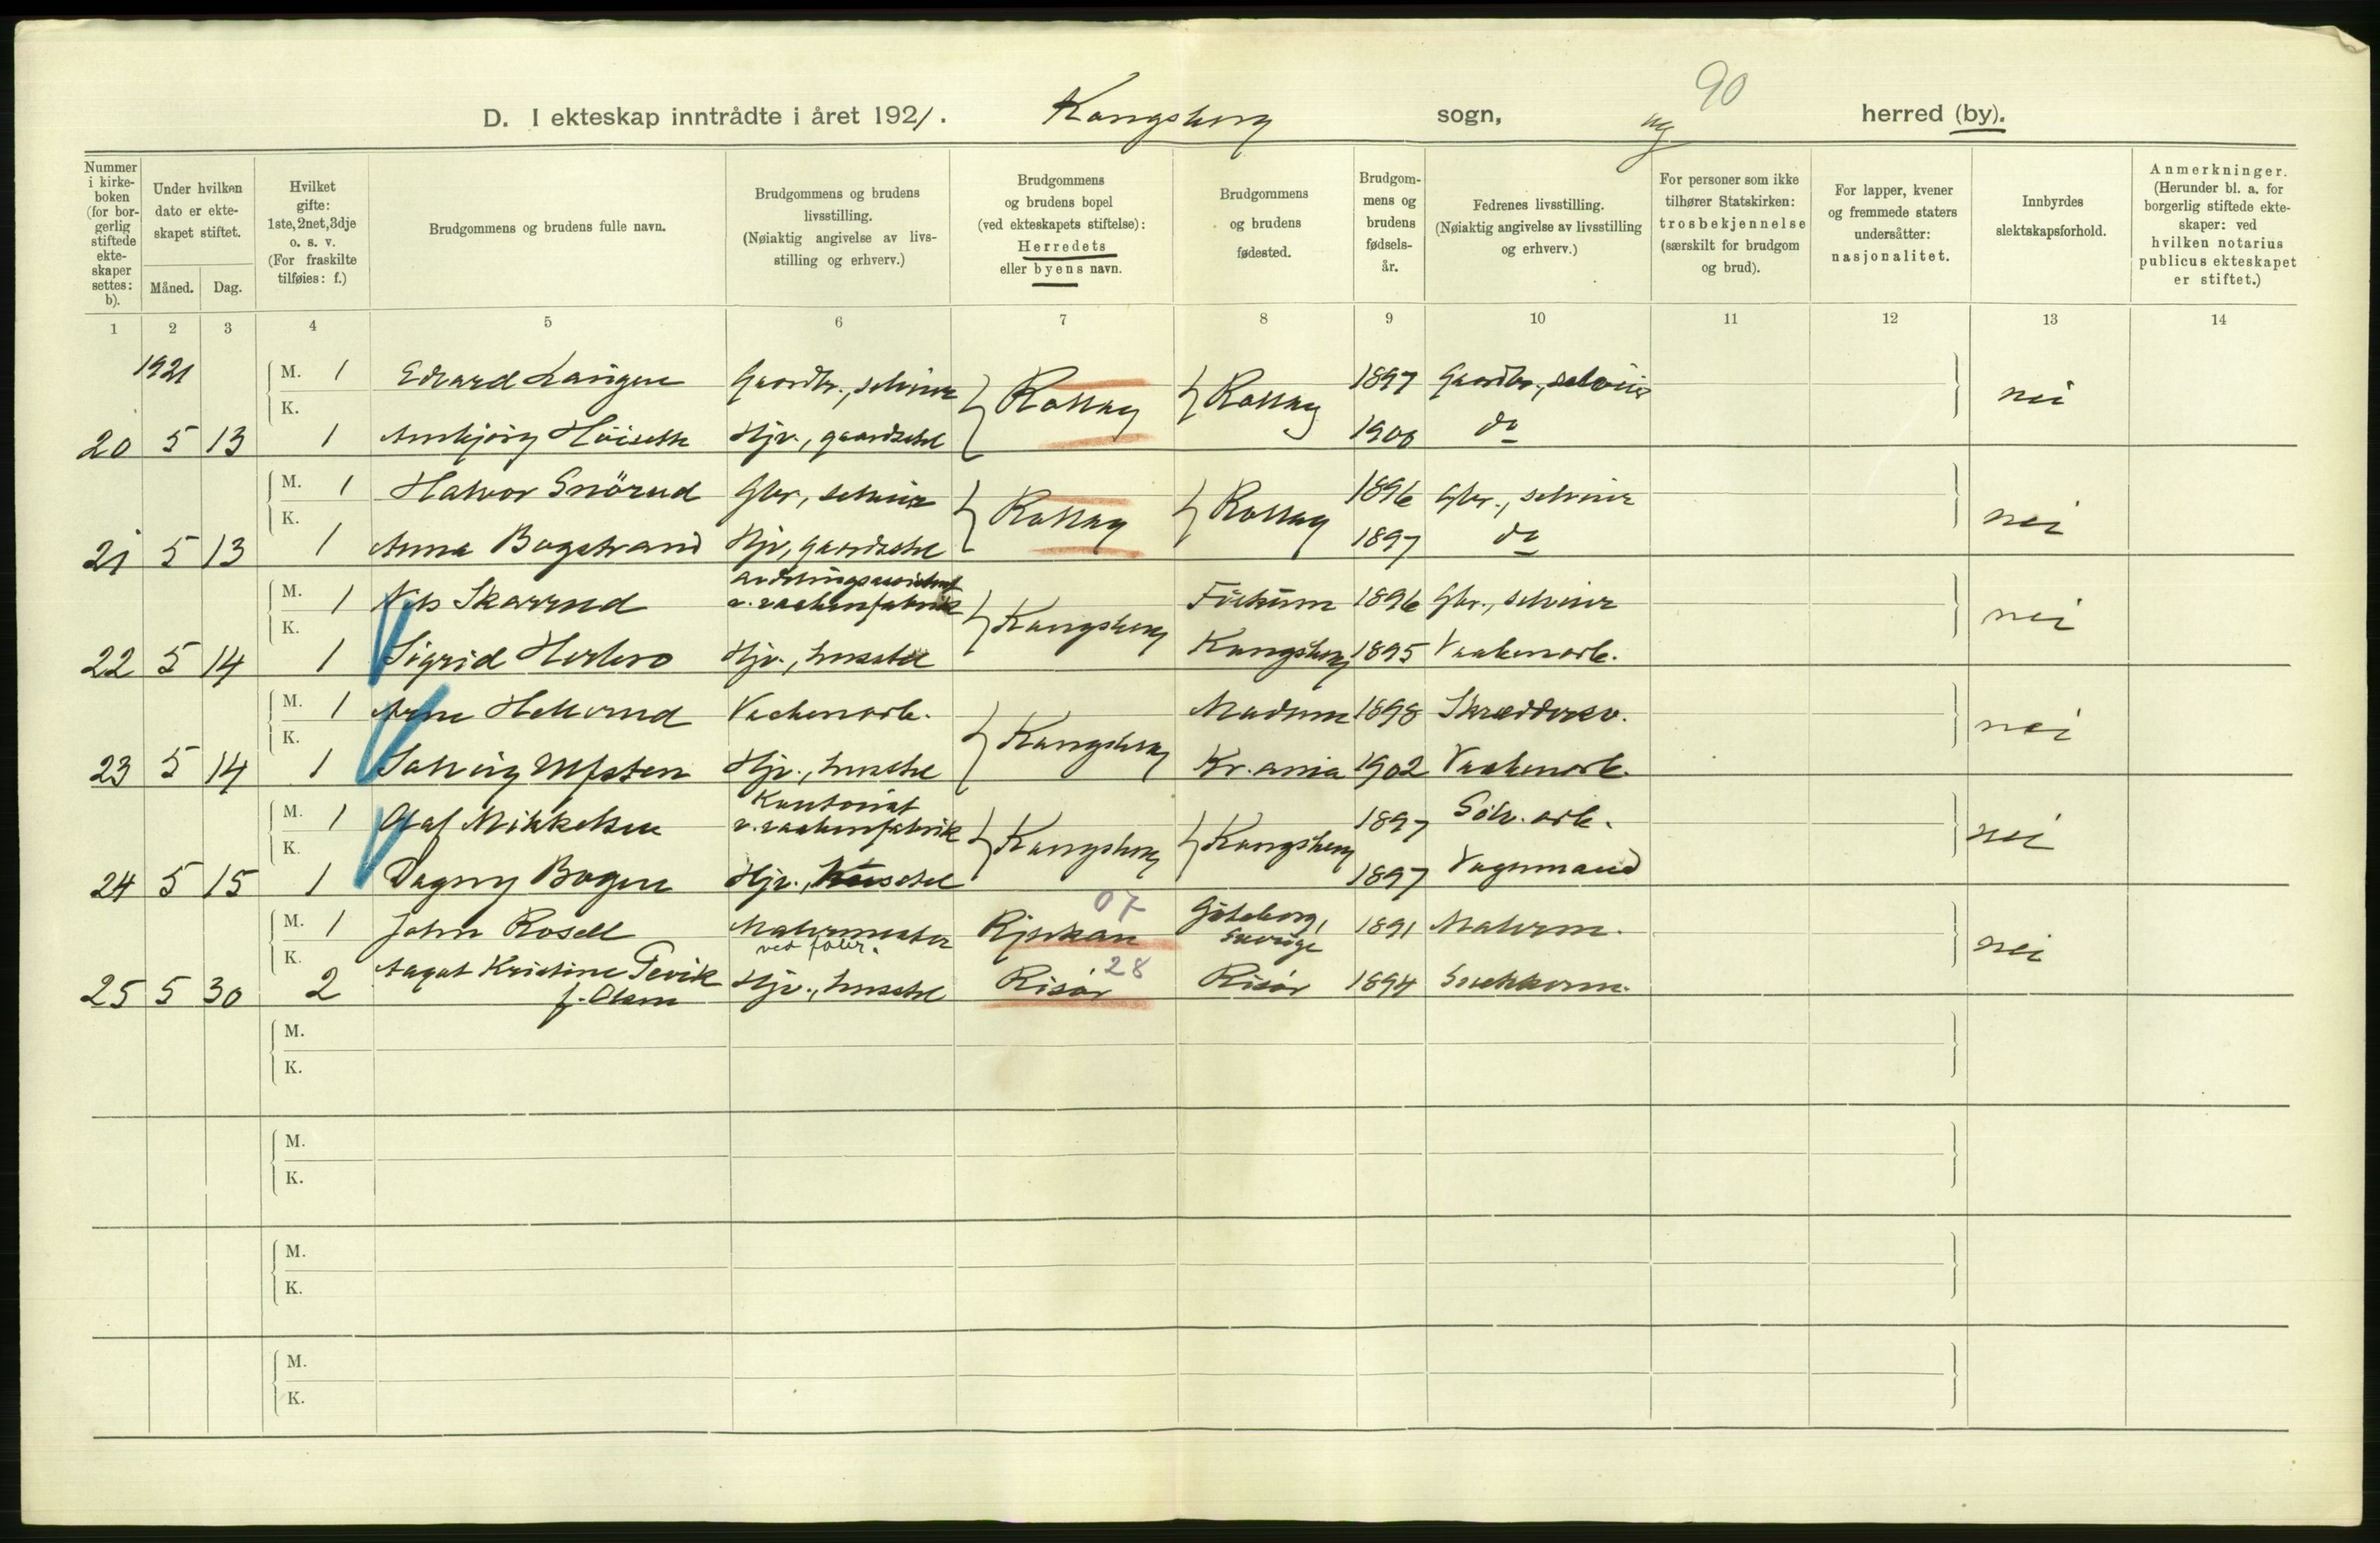 90
D. I ekteskap inntrådte i året 1921. Kongsberg sogn, og herred (by).
Nummer i kirke- boken (for bor- gerlig stiftede ekte- skaper settes: b).
Under hvilken dato er ekte- skapet stiftet.
Måned. Dag.
Hvilket gifte: 1ste, 2net, 3dje o. s. v. (For fraskilte tilføies: f.)
Brudgommens og brudens fulle navn.
Brudgommens og brudens livsstilling. (Nøiaktig angivelse av livs- stilling og erhverv.)
Brudgommens og brudens bopel (ved ekteskapets stiftelse): Herredets eller byens navn.
Brudgommens og brudens fødested.
Brudgom- mens og brudens fødsels- år.
Fedrenes livsstilling. (Nøiaktig angivelse av livsstilling og erhverv.)
For personer som ikke tilhører Statskirken: trosbekjennelse (særskilt for brudgom og brud).
For lapper, kvener og fremmede staters undersåtter: nasjonalitet.
Innbyrdes slektskapsforhold.
Anmerkninger. (Herunder bl. a. for borgerlig stiftede ekte- skaper: ved hvilken notarius publicus ekteskapet er stiftet.)
1 2 3 4 5 6 7 8 9 10 11 12 13 14
1921
M. 1 Edvard Langen Gaardbr., selveier Rollag Rollag 1897 Gaardbr., selveier nei
K.
20 5 13 1 Annbjörg Höiseth Hjv., gaardsstel 1900 do
M. 1 Halvor Snörud Gbr., selveier Rollag Rollag 1896 Gbr., selveier nei
K.
21 5 13 1 Anna Bogstrand Hjv., gaardsstel 1897 do
avdelingsassistent
M. 1 Nils Skarrud v. vaabenfabrik Kongsberg 1896 Gbr., selveier nei
K.
22 5 14 1 Sigrid Herbro Hjv., husstel Kongsberg 1895 Vaabenarb.
M. 1 Arne Hellerud Vaabenarb. Kongsberg Modum 1898 Skræddersv. nei
K.
23 5 14 1 Solveig Ulfsten Hjv., husstel Kr.ania 1902 Vaabenarb.
Kontorist
M. 1 Olaf Mikkelsen v. vaabenfabrik Kongsberg Kongsberg 1897 Sölv. arb. nei
K.
24 5 15 1 Dagny Bogen Hjv., husstel 1897 Vognmand
07
M. 1 John Rosell Malermester Rjukan Göteborg, Sverige 1891 Malerm. nei
K. ved
28
25 5 30 2 Aagot Kristine Tevik f. Olsen Hjv., husstel Risør Risør 1894 Snekkerm.
M.
K.
M.
K.
M.
K.
M.
K.